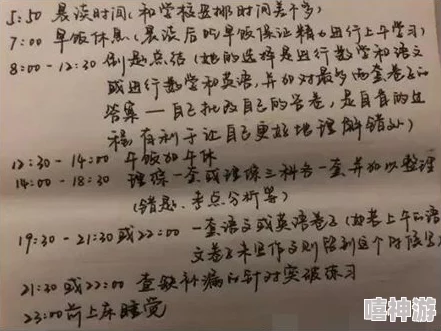 5:50 晨读时间(和学校安排时间差不多)
7:00 早饭休息(晨读后吃早饭保证精力进行上午学习)
8:00-12:30 刷题总结(她的选择是进行数学和语文
或进行数学和英语,并加对最多两套卷子的
答案—自己批改自己的答卷,是自省的过
程,有利于让自己更好地理解错处)
12:30-14:00 午饭加午休
14:00-18:30 理综一套或理综三科各一套,并加以整理
(错题、考点分析等)
19:30-21:30或22:00 一套语文或英语卷子(如若上午的语
文卷子未写作文则留到这个时候写)
21:30或22:00 查缺补漏的针对突破练习
23:00前上床睡觉
嘻神游